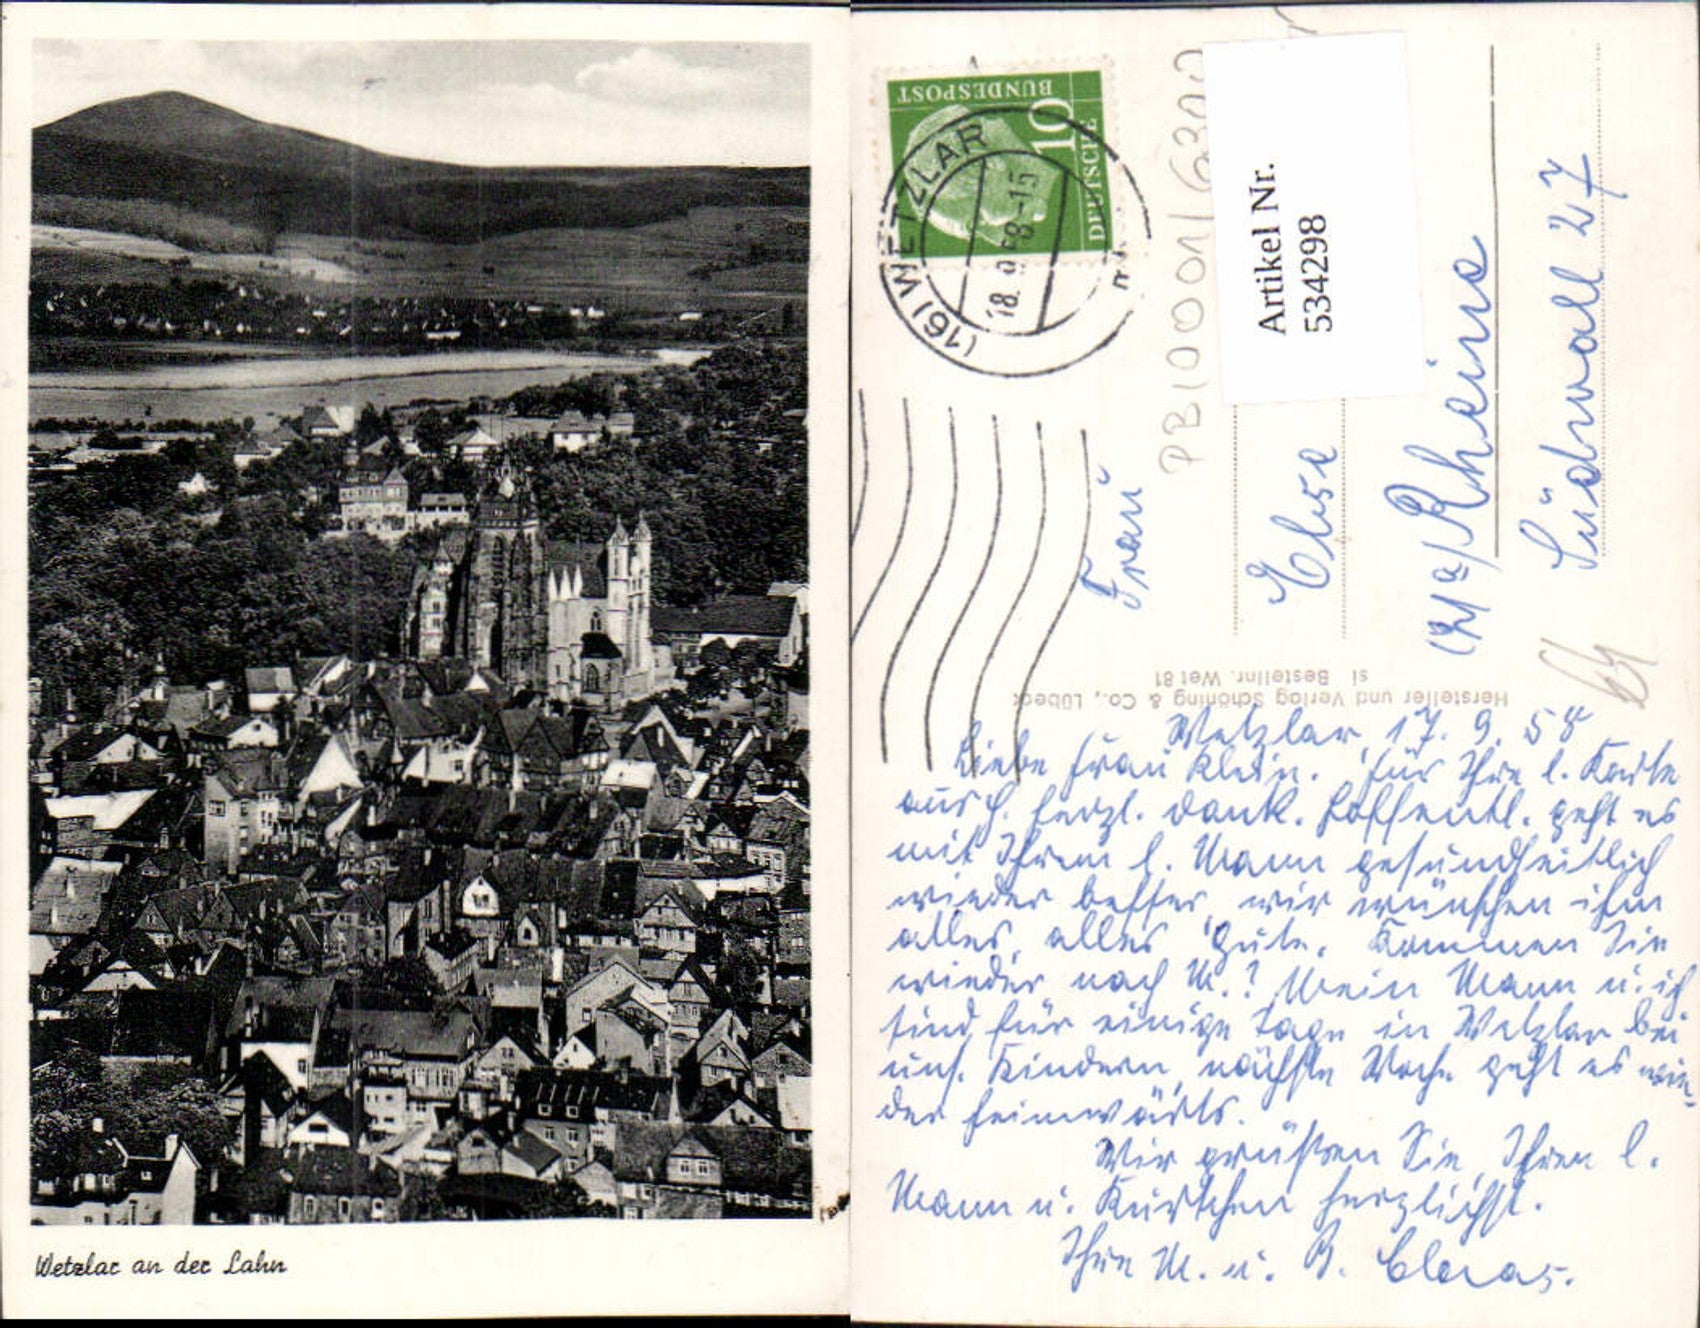 Wetzlar an der Lahn
DEUTSCHE
BUNDESPOST
10
(16) WETZLAR
18.9.58-15
PB10001/6300
Artikel Nr.
534298
Frau
Else
(21a) Rheine
Südwall 27
Hersteller und Verlag Schöning & Co., Lübeck
si Bestellnr. Wet 81
Wetzlar, 17. 9. 58
Liebe Frau Klein. Für Ihre l. Karte
auch herzl. Dank. Hoffentl. geht es
mit Ihrem l. Mann gesundheitlich
wieder besser, wir wünschen ihm
alles, alles Gute. Kommen Sie
wieder nach M.? Mein Mann u. ich
sind für einige Tage in Wetzlar bei
uns. Kindern, nächste Woche geht es wie-
der heimwärts.
Wir grüßen Sie, Ihren l.
Mann u. Kurtchen herzlichst.
Ihre M. u.